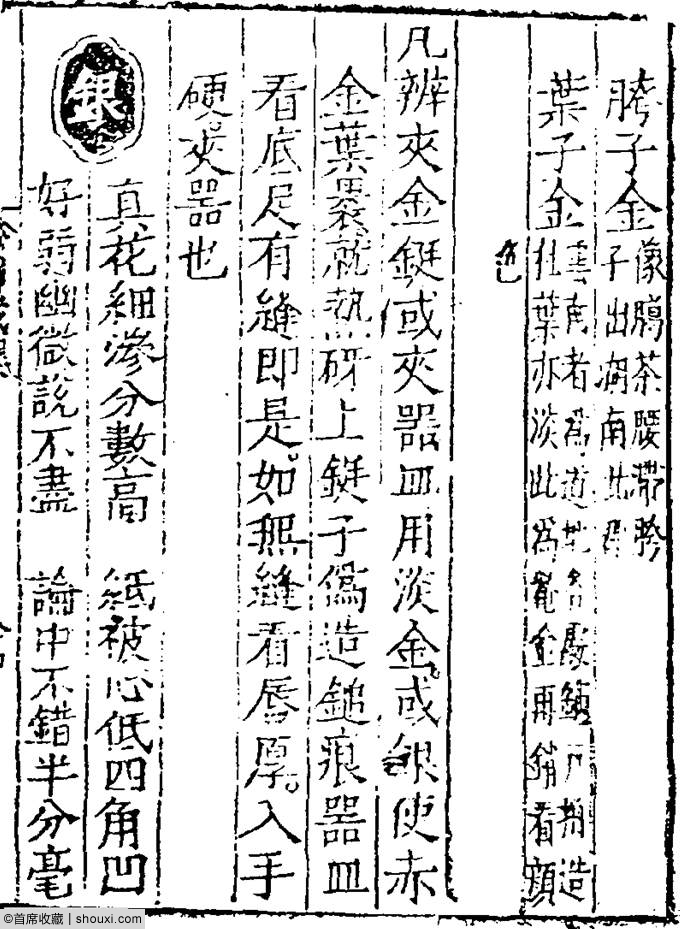 胯子金像腸茶腰帶胯
子出湖南北
葉子金雲南者為道地各處鋪戶拥造
杜葉亦淡此為金再銷看顏
色
凡辨夾金鋌或夾器皿用淡金或銀使赤
金葉裹就熱砑上鋌子偽造鎚痕器皿
看底足有縫即是如無縫看唇厚入手
硬夾器也
銀
真花細滲分數高 紙被心低四角凹
好弱幽微說不盡 論中不錯半分毫
©首席收藏 | shouxi.com